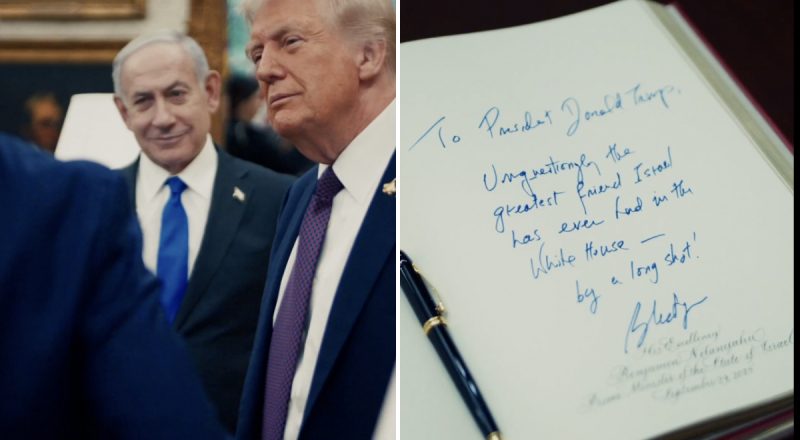 To President Donald Trump,
Unquestiongly the
greatest friend Israel
has ever had in the
White House —
by a long shot!
His Excellency
Benjamin Netanyahu
Prime Minister of the State of Israel
September 29, 2025